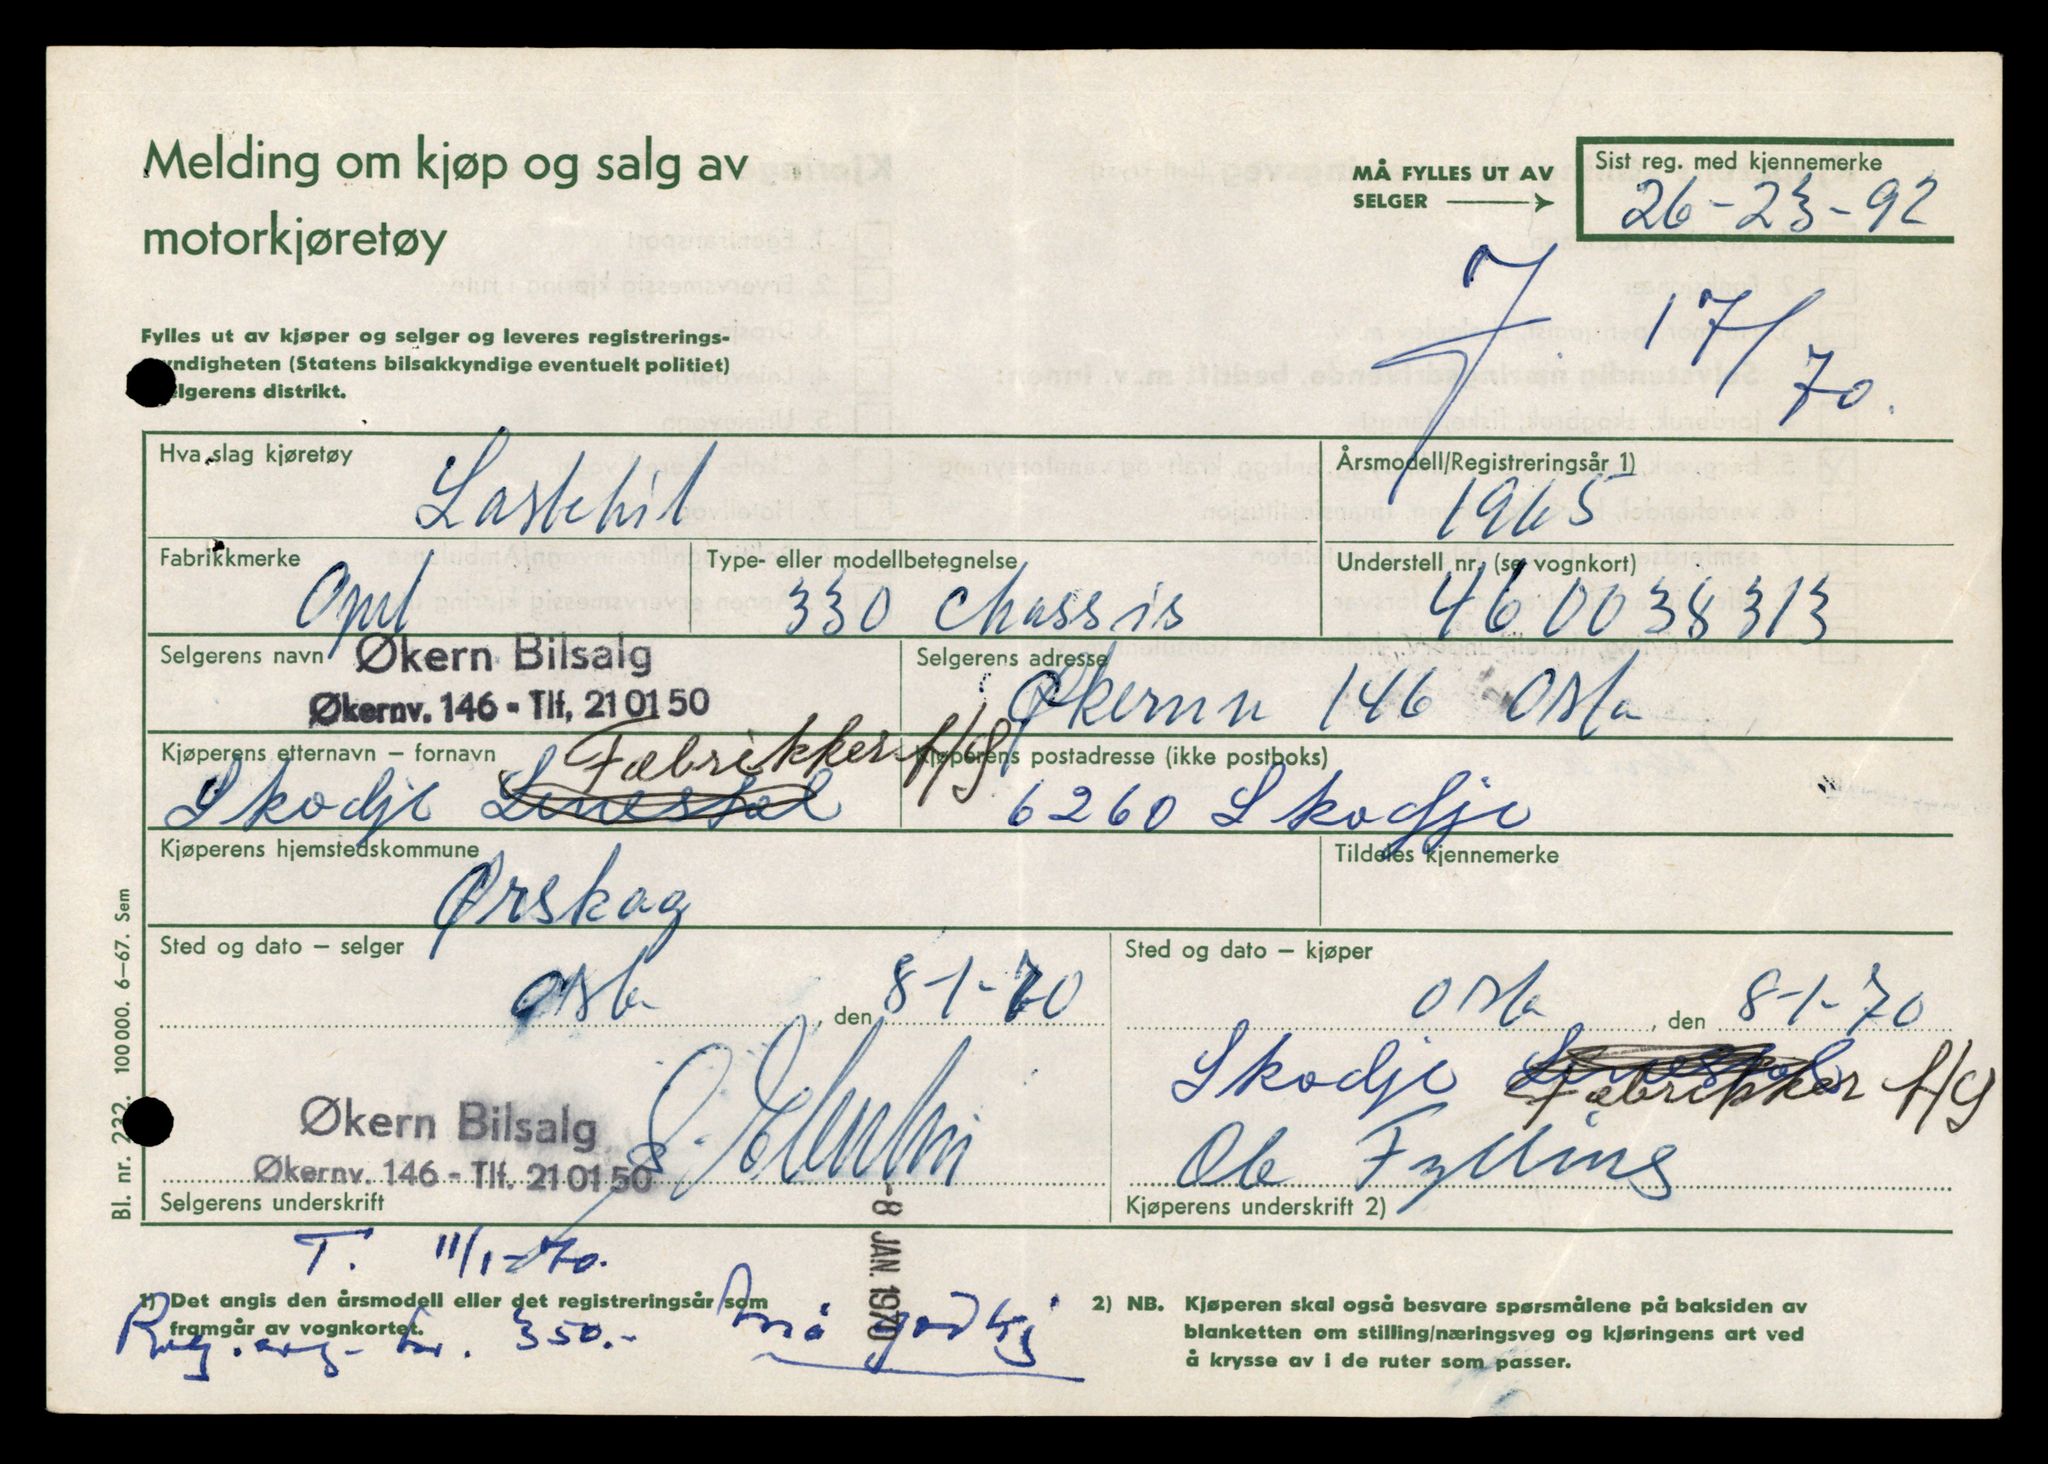 Melding om kjøp og salg av
motorkjøretøy
MÅ FYLLES UT AV
SELGER
Sist reg. med kjennemerke
26-23-92
17/
70.
Fylles ut av kjøper og selger og leveres registrerings-
yndigheten (Statens bilsakkyndige eventuelt politiet)
elgerens distrikt.
Hva slag kjøretøy
Lastebil
Årsmodell/Registreringsår 1)
1965
Fabrikkmerke
Opel
Type- eller modellbetegnelse
330 chassis
Understell nr. (se vognkort)
460038313
Selgerens navn
Økern Bilsalg
Økernv. 146 - Tlf. 21 01 50
Selgerens adresse
Økernv 146 Oslo
Kjøperens etternavn – fornavn
Fabrikker A/S
Skodje Linestol
Kjøperens postadresse (ikke postboks)
6260 Skodje
Kjøperens hjemstedskommune
Ørskog
Tildeles kjennemerke
Sted og dato – selger
Oslo, den 8-1-70
Sted og dato – kjøper
Oslo, den 8-1-70
Skodje
Fabrikker A/S
Økern Bilsalg
Økernv. 146 - Tlf. 21 01 50
Ole Fylling
Selgerens underskrift
Kjøperens underskrift 2)
-8 JAN. 1970
T. 11/1-70.
1) Det angis den årsmodell eller det registreringsår som
framgår av vognkortet.
Reg. avg. kr. 350.- må godkj
2) NB. Kjøperen skal også besvare spørsmålene på baksiden av
blanketten om stilling/næringsveg og kjøringens art ved
å krysse av i de ruter som passer.
Bl. nr. 232. 100 000. 6–67. Sem